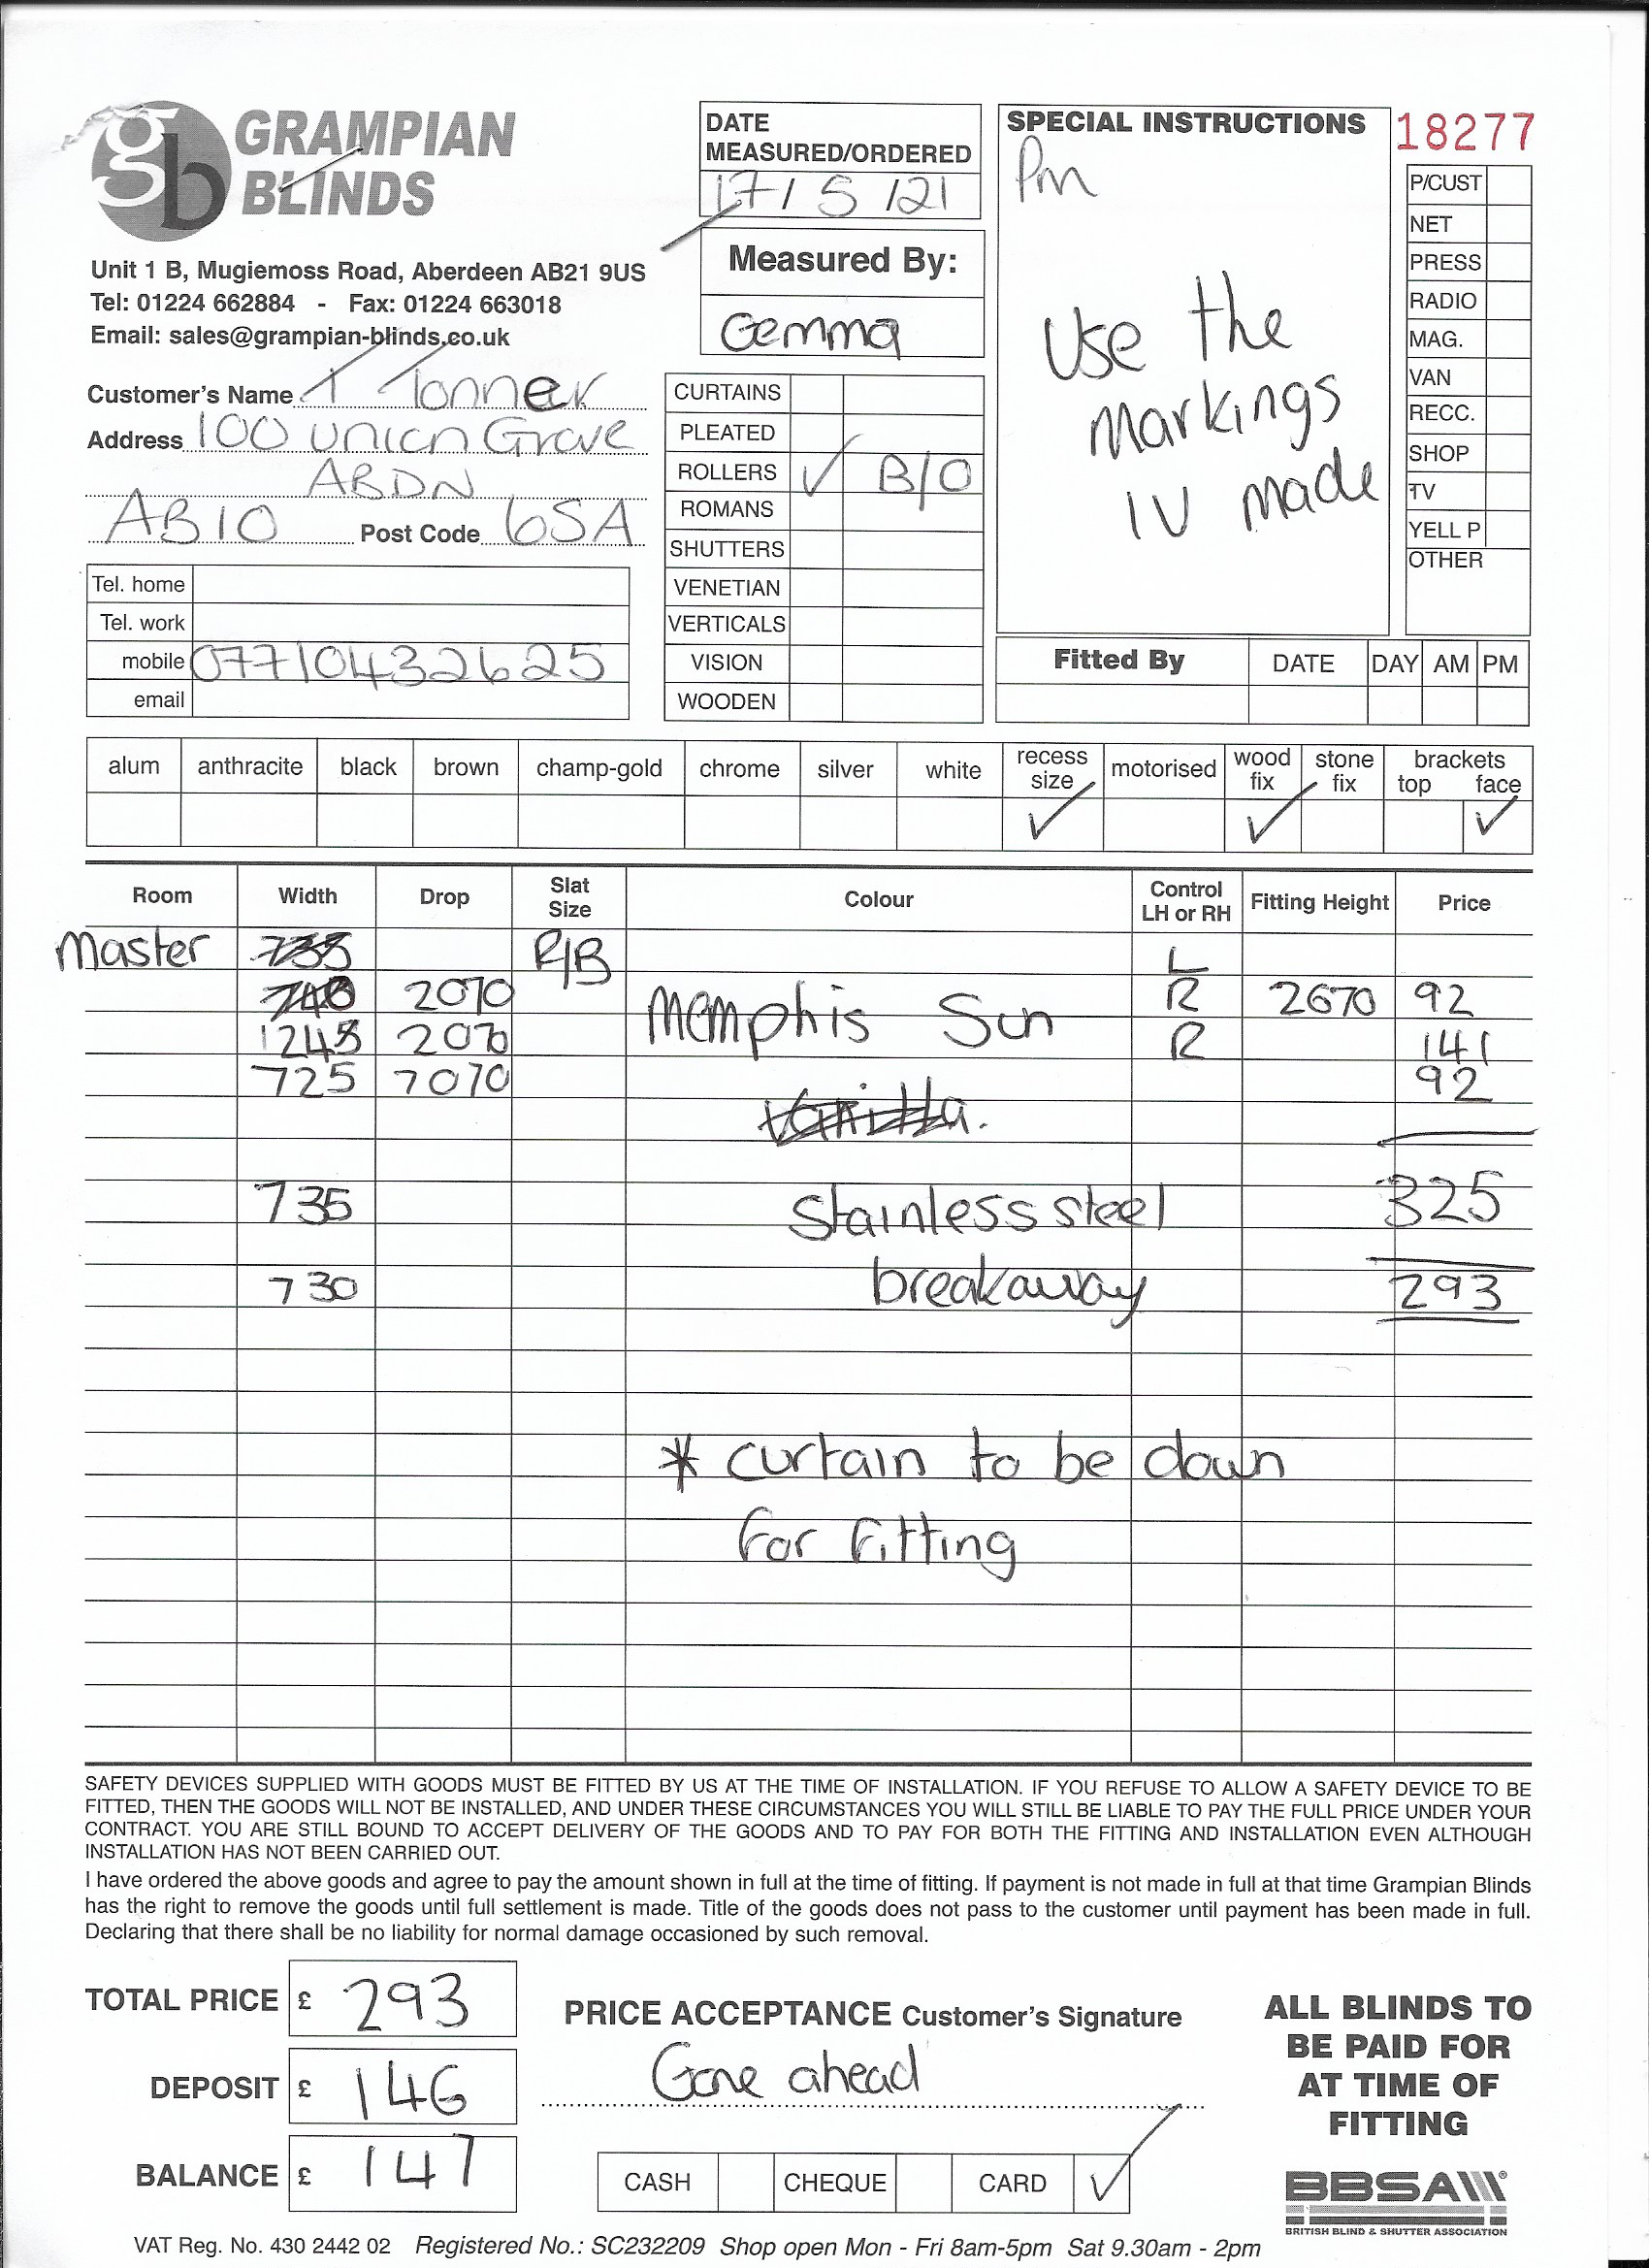 gb GRAMPIAN
BLINDS
Unit 1 B, Mugiemoss Road, Aberdeen AB21 9US
Tel: 01224 662884 - Fax: 01224 663018
Email: sales@grampian-blinds.co.uk
Customer's Name T Tonner
Address 100 Union Grove
ABDN
AB10 Post Code 6SA
Tel. home
Tel. work
mobile 07710432625
email
DATE
MEASURED/ORDERED
17/5/21
Measured By:
Gemma
CURTAINS
PLEATED
ROLLERS ✓ B/O
ROMANS
SHUTTERS
VENETIAN
VERTICALS
VISION
WOODEN
SPECIAL INSTRUCTIONS
Pm
Use the
markings
IV made
18277
P/CUST
NET
PRESS
RADIO
MAG.
VAN
RECC.
SHOP
TV
YELL P
OTHER
Fitted By DATE DAY AM PM
alum anthracite black brown champ-gold chrome silver white recess size motorised wood fix stone fix brackets top face
✓ ✓ ✓
Room Width Drop Slat Size Colour Control LH or RH Fitting Height Price
Master 735 R/B L
740 2070 Memphis Sun R 2670 92
1245 2070 R 141
725 2070 92
Vanilla.
735 Stainless steel 325
730 breakaway 293
* curtain to be down
for fitting
SAFETY DEVICES SUPPLIED WITH GOODS MUST BE FITTED BY US AT THE TIME OF INSTALLATION. IF YOU REFUSE TO ALLOW A SAFETY DEVICE TO BE
FITTED, THEN THE GOODS WILL NOT BE INSTALLED, AND UNDER THESE CIRCUMSTANCES YOU WILL STILL BE LIABLE TO PAY THE FULL PRICE UNDER YOUR
CONTRACT. YOU ARE STILL BOUND TO ACCEPT DELIVERY OF THE GOODS AND TO PAY FOR BOTH THE FITTING AND INSTALLATION EVEN ALTHOUGH
INSTALLATION HAS NOT BEEN CARRIED OUT.
I have ordered the above goods and agree to pay the amount shown in full at the time of fitting. If payment is not made in full at that time Grampian Blinds
has the right to remove the goods until full settlement is made. Title of the goods does not pass to the customer until payment has been made in full.
Declaring that there shall be no liability for normal damage occasioned by such removal.
TOTAL PRICE £ 293
DEPOSIT £ 146
BALANCE £ 147
PRICE ACCEPTANCE Customer's Signature
Gone ahead
CASH CHEQUE CARD ✓
ALL BLINDS TO
BE PAID FOR
AT TIME OF
FITTING
BBSA
BRITISH BLIND & SHUTTER ASSOCIATION
VAT Reg. No. 430 2442 02 Registered No.: SC232209 Shop open Mon - Fri 8am-5pm Sat 9.30am - 2pm